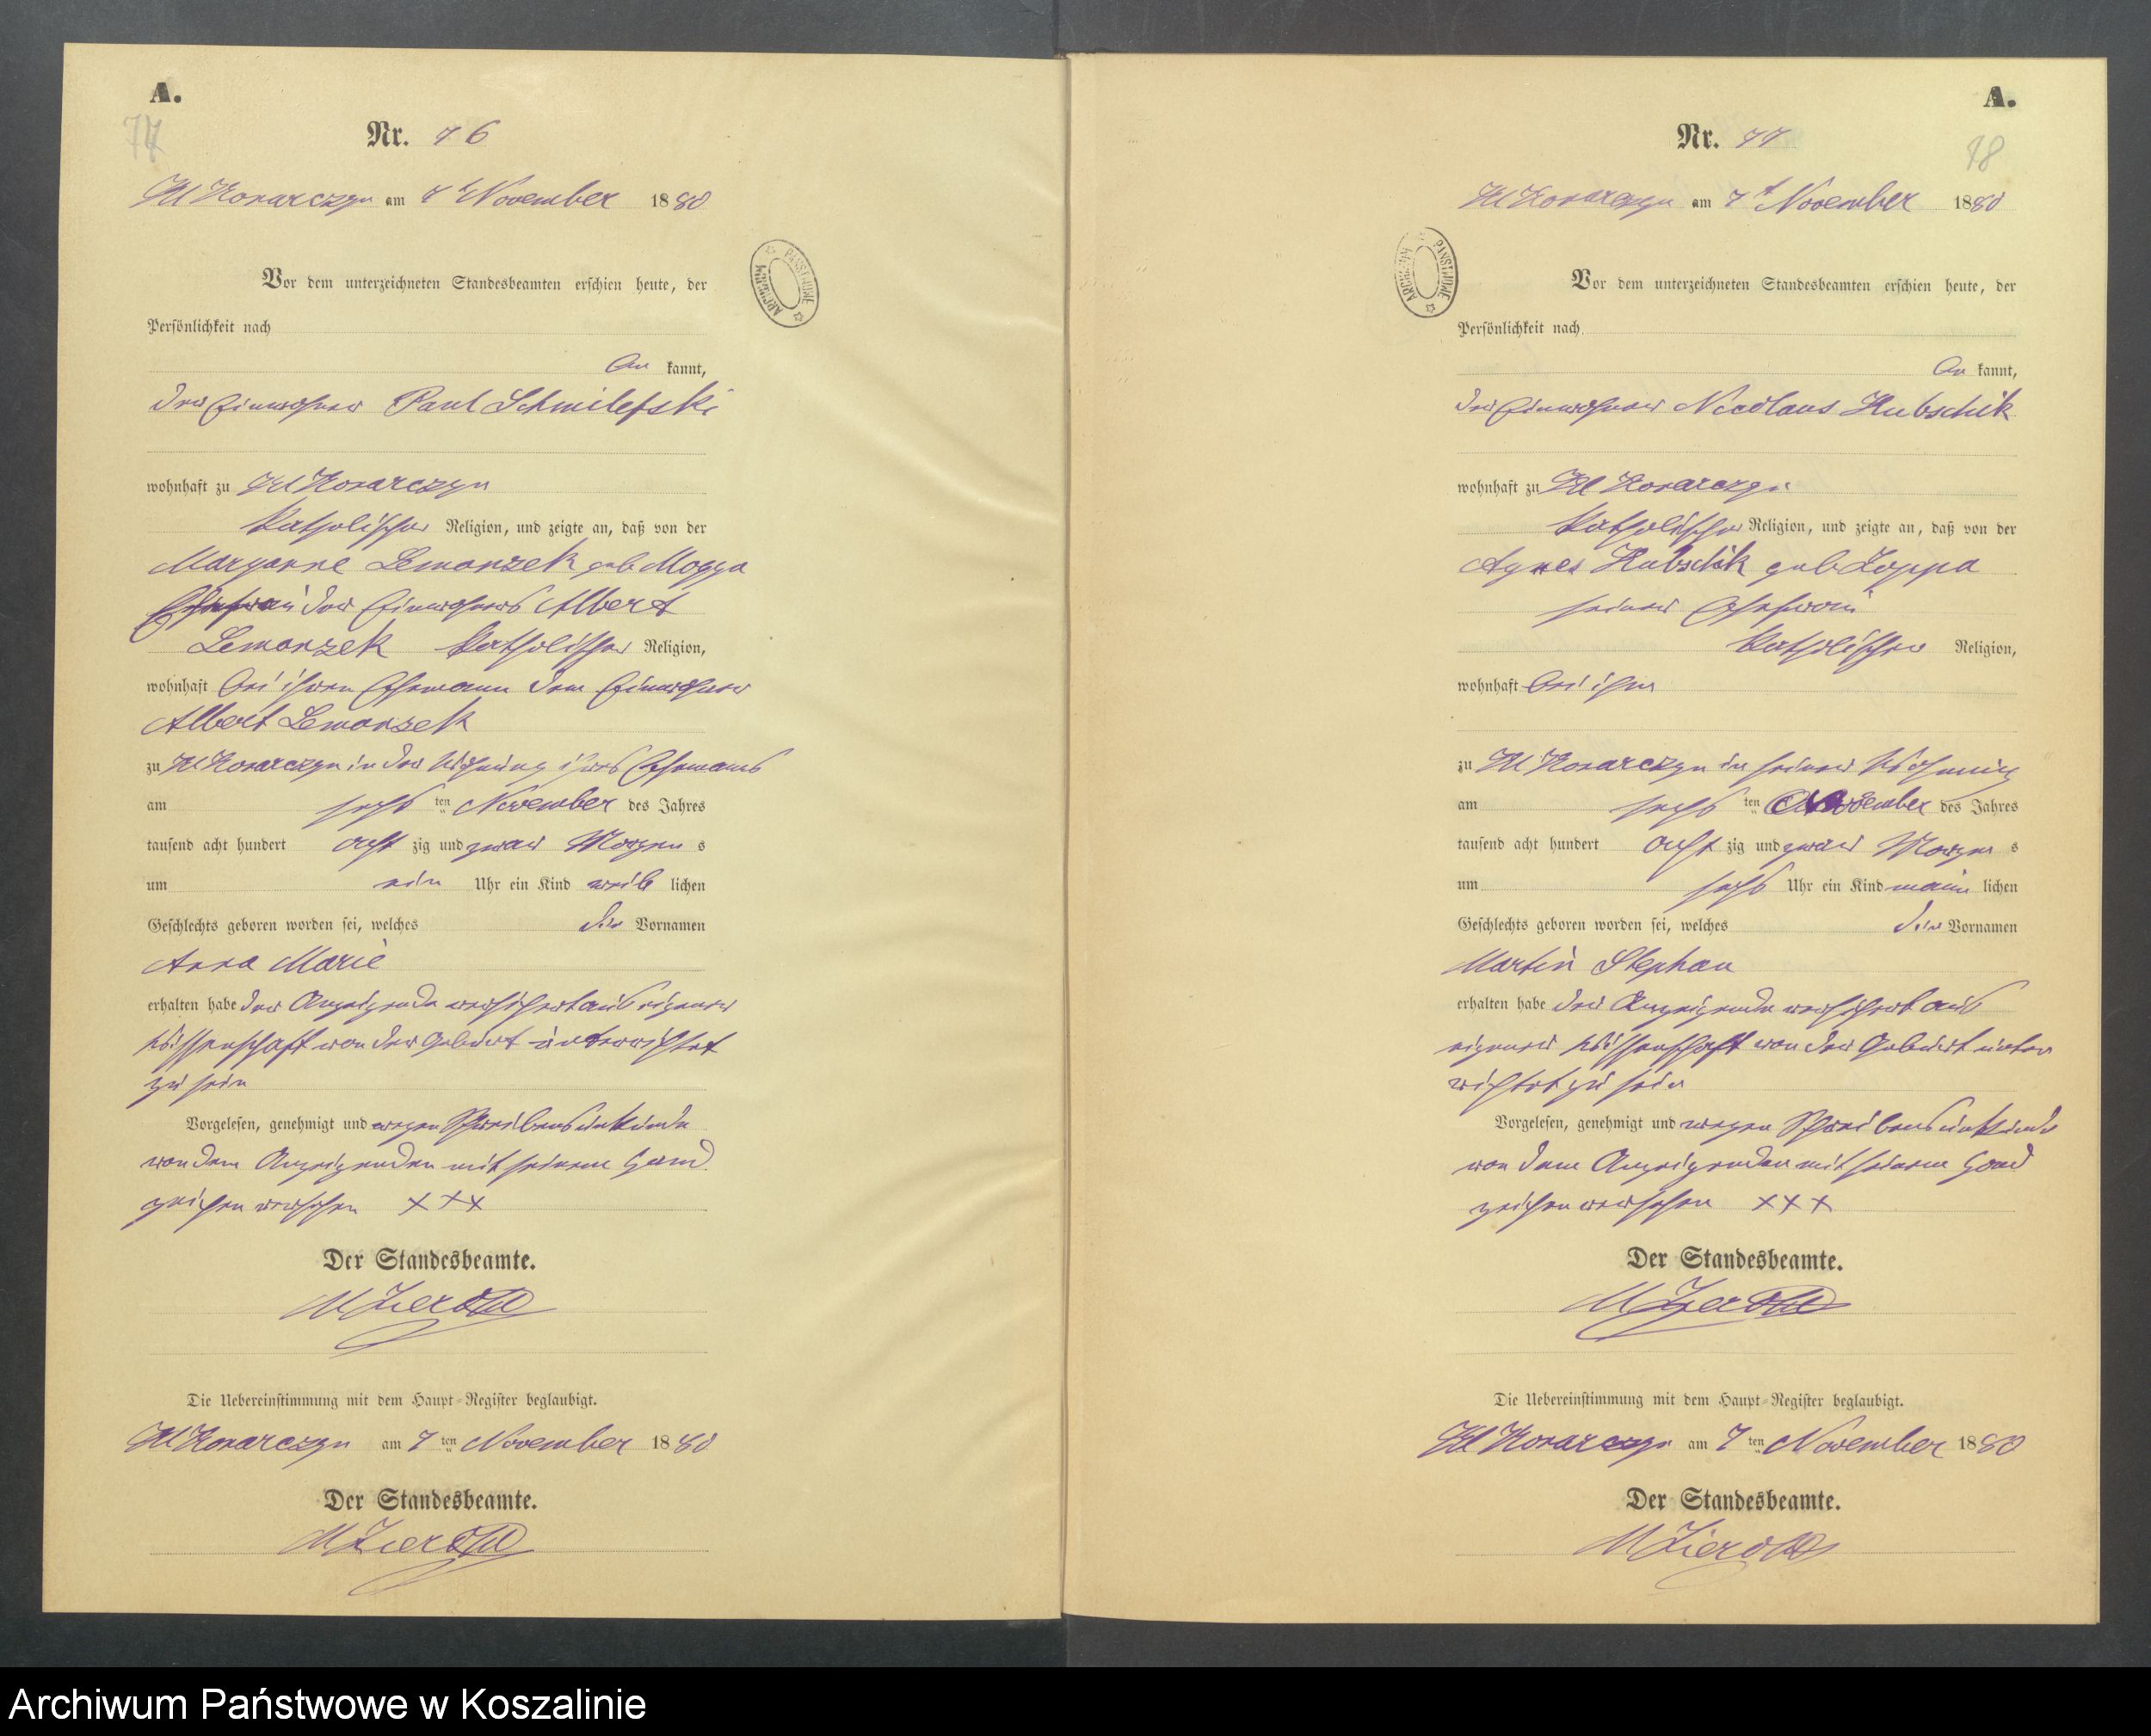 A.
77
Nr. 76
Kl Konarczyn am 7t November 1880
Vor dem unterzeichneten Standesbeamten erschien heute, der
Persönlichkeit nach
be kannt,
der Einwohner Paul Schmilefski
wohnhaft zu Kl Konarczyn
katholischer Religion, und zeigte an, daß von der
Maryanne Lemanzek geb Mogga
Ehefrau des Einwohners Albert
Lemanzek katholischer Religion,
wohnhaft bei ihren Ehemann dem Einwohner
Albert Lemanzek
zu Kl Konarczyn in der Wohnung ihres Ehemanns
am sechs ten November des Jahres
tausend acht hundert acht zig und zwar Morgen s
um ein Uhr ein Kind weib lichen
Geschlechts geboren worden sei, welches die Vornamen
Anna Marie
erhalten habe der Anzeigende versichert aus eigener
Wissenschaft von der Geburt unterrichtet
zu sein
Vorgelesen, genehmigt und wegen Schreibensunkunde
von dem Anzeigenden mit seinem Hand
zeichen versehen XXX
Der Standesbeamte.
M Zieroth
Die Uebereinstimmung mit dem Haupt-Register beglaubigt.
Kl Konarczyn am 7 ten November 1880
Der Standesbeamte.
M Zieroth
A.
78
Nr. 77
Kl Konarczyn am 7t November 1880
Vor dem unterzeichneten Standesbeamten erschien heute, der
Persönlichkeit nach
be kannt,
der Einwohner Nicolaus Kubschik
wohnhaft zu Kl Konarczyn
katholischer Religion, und zeigte an, daß von der
Agnes Kubschik geb Zoppa
seiner Ehefrau
katholischer Religion,
wohnhaft bei ihm
zu Kl Konarczyn in seiner Wohnung
am sechs ten November des Jahres
tausend acht hundert acht zig und zwar Morgen s
um sechs Uhr ein Kind männ lichen
Geschlechts geboren worden sei, welches die Vornamen
Martin Stephan
erhalten habe der Anzeigende versichert aus
eigener Wissenschaft von der Geburt unter
richtet zu sein
Vorgelesen, genehmigt und wegen Schreibensunkunde
von dem Anzeigenden mit seinem Hand
zeichen versehen XXX
Der Standesbeamte.
M Zieroth
Die Uebereinstimmung mit dem Haupt-Register beglaubigt.
Kl Konarczyn am 7 ten November 1880
Der Standesbeamte.
M Zieroth
ARCHIWUM PAŃSTWOWE
ARCHIWUM PAŃSTWOWE
Archiwum Państwowe w Koszalinie